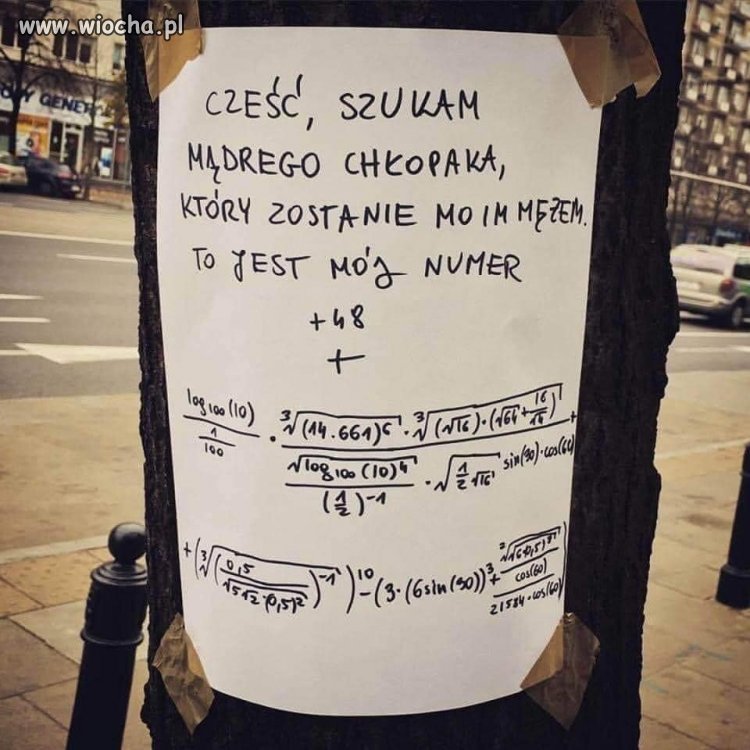 www.wiocha.pl
CZEŚĆ, SZUKAM
MĄDREGO CHŁOPAKA,
KTÓRY ZOSTANIE MOIM MĘŻEM.
TO JEST MÓJ NUMER
+48
+
log₁₀₀(10) / (1/100) · (∛(14.661)⁶ · ∛((√16)·(√64 + 16/√4))) / ((√log₁₀₀(10)⁴ / (1/2)⁻¹) · √(1/2 √16)^(sin(90)·cos(60))) +
+ (∛((0,5 / √512·(0,5)²)⁻¹))¹⁰ − (3·(6sin(90))³ +
cos(60)
21584·cos(60)